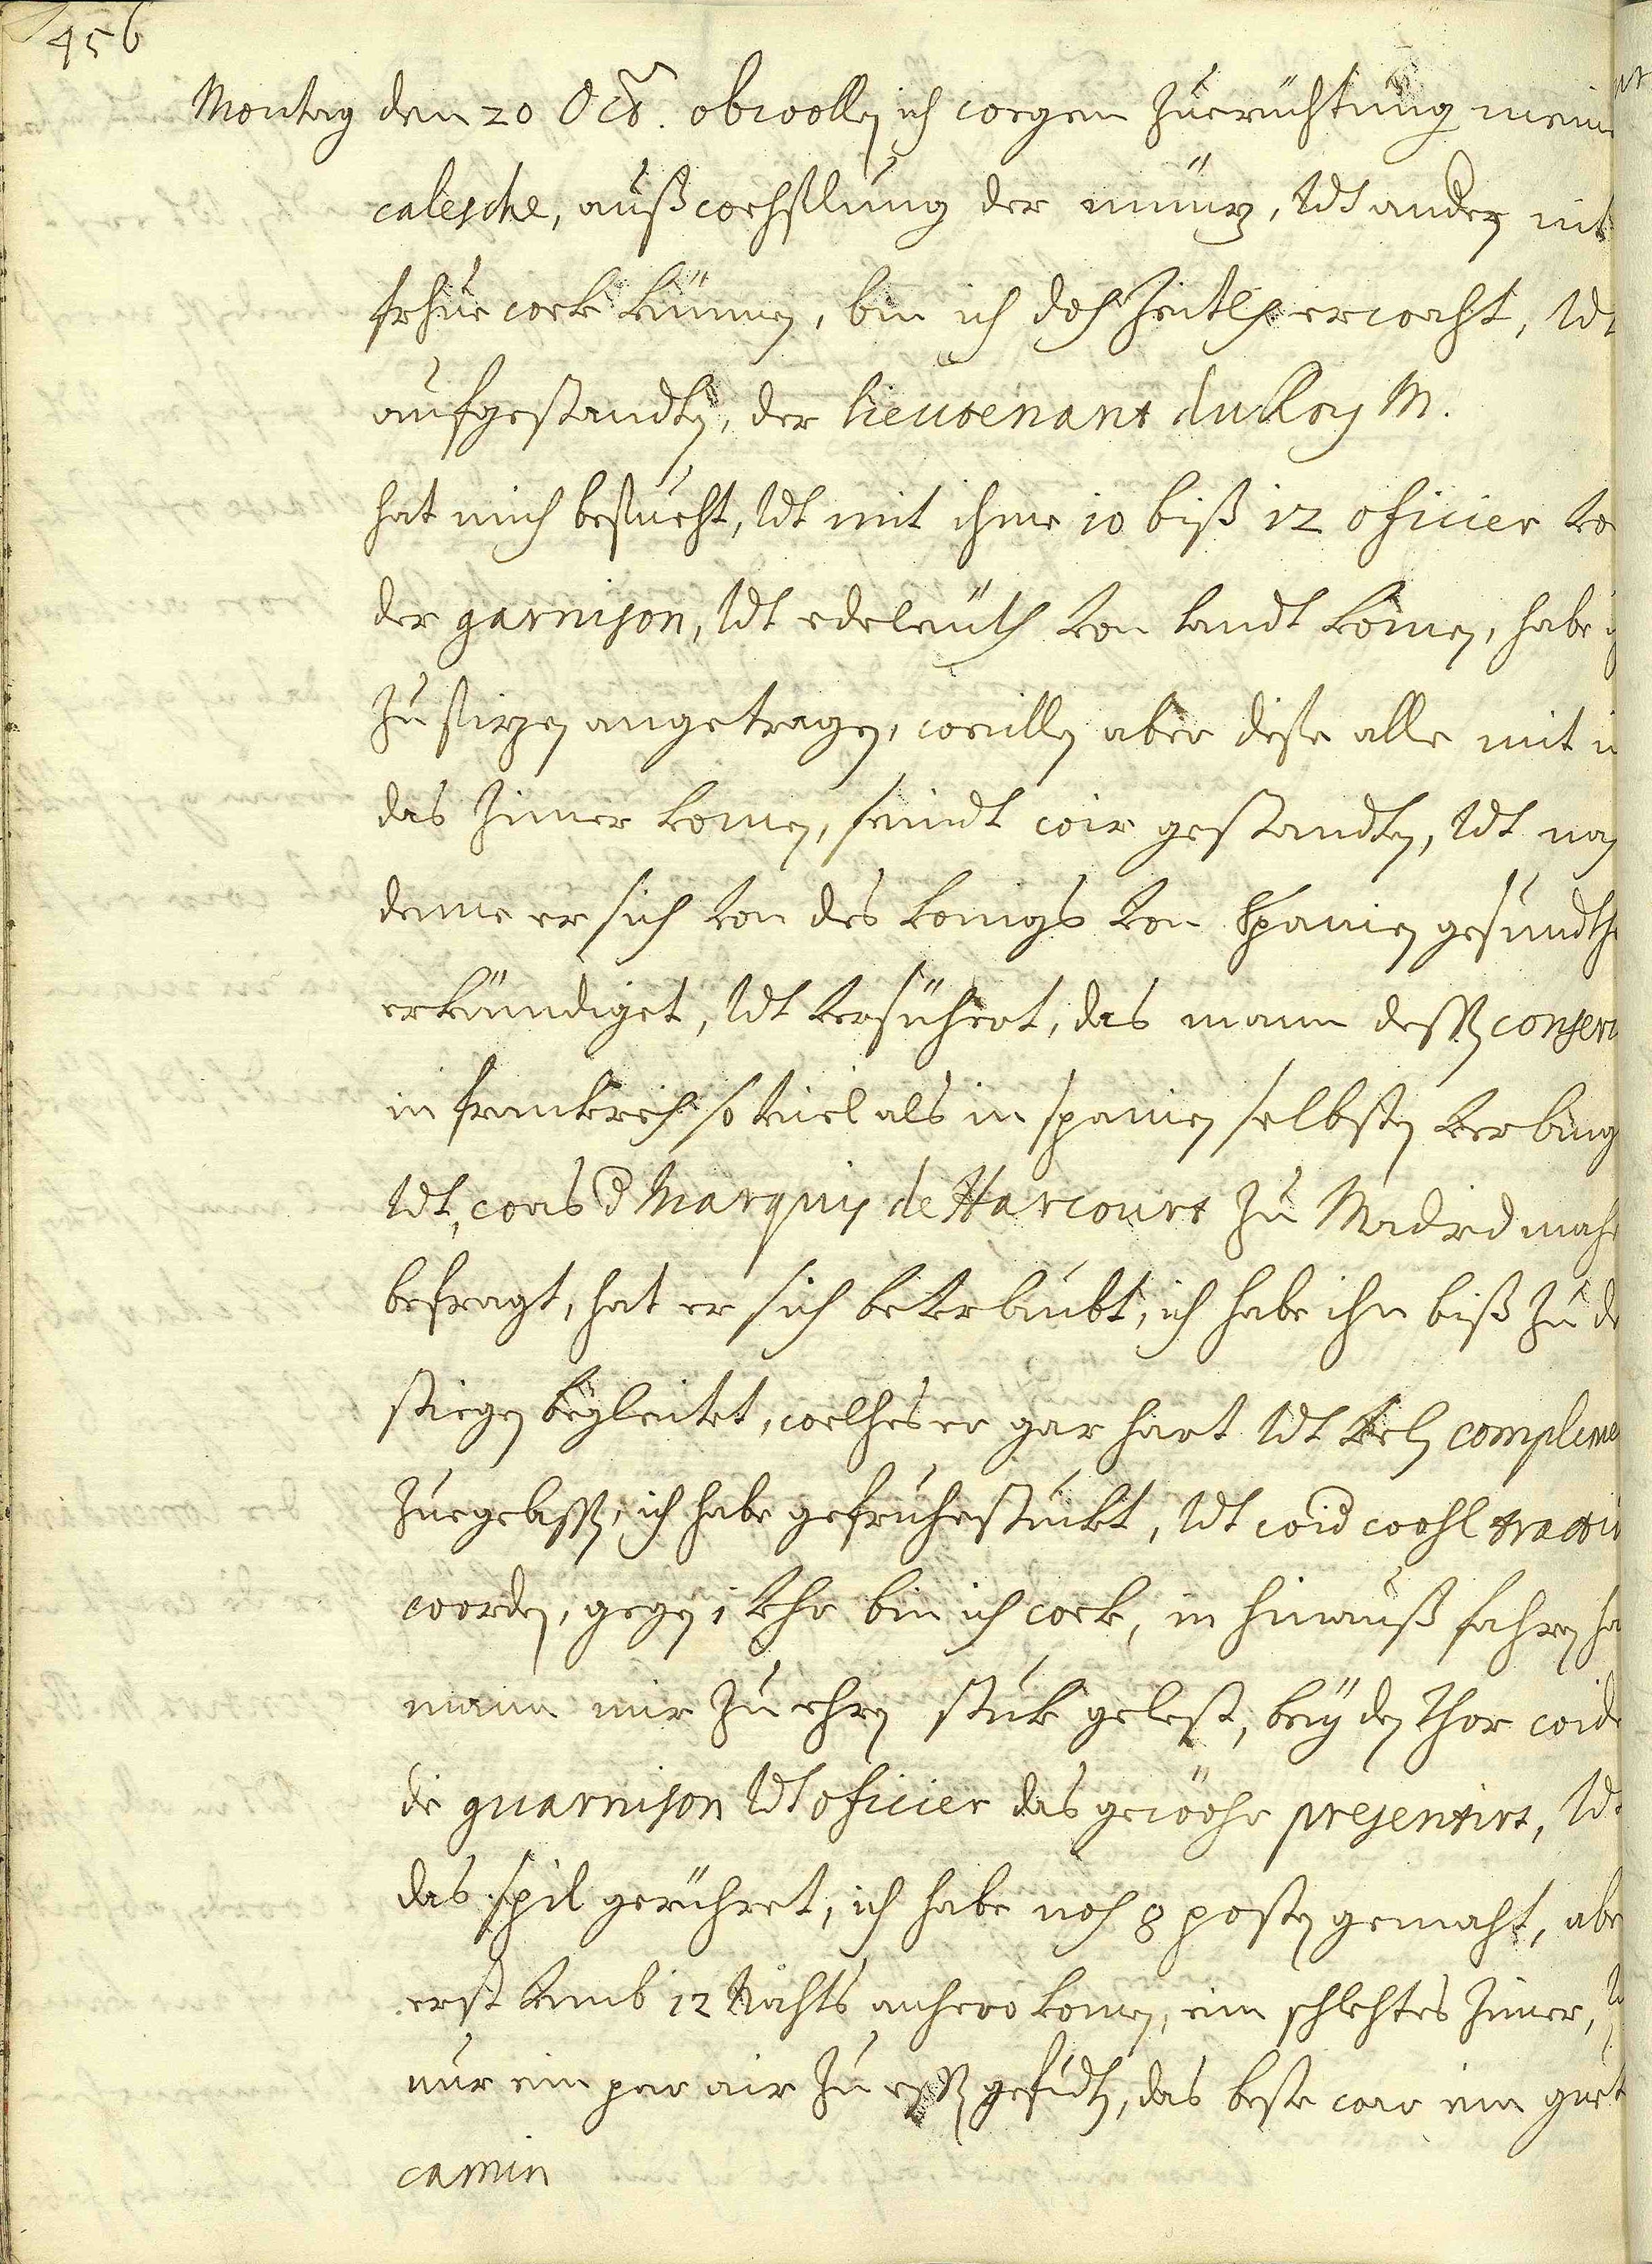 456
Montag den 20 Octb. obwollen ich wegen zuerüchtung meine
calesche, außwechslung der müntz, Vdt anders nit
frhüe wek künnen, bin ich doch zeitlich erwacht, Vdt
aufgestandten, der lieutenant du Roy M.
hat mich besuecht, Vdt mit ihme 10 biß 12 oficier vo
der garnison, Vdt edeleüth von landt komen, habe
zu sitzen angetragen, weillen aber dise alle mit
das Zimer komen, seindt wir gestandten, Vdt nach
deme er sich von des konigs von Spanien gesundthe
erkündiget, Vdt versichert, das mann dessen conserv
in frankreich so viel als in spanien selbsten verlang
Vdt, was d Marquis de Harcourt zu Madrid mache
befragt, hat er sich beverlaubt, ich habe ihn biß zu de
stiegen begleitet, welches er gar hart Vdt vielen compleme
zuegelassen, ich habe gefruhestückt, Vdt wid wohl tractir
worden, gegen 1 Vhr bin ich wek, in hinauß fahren ha
mann mir zu ehren stuk gelest, bey den thor wide
die guarnison Vdt oficier das gewöhr presentirt, Vdt
das spil gerühret, ich habe noch 8 posten gemacht, aber
erst vmb 12 Nachts anhero komen, ein schlechtes Zimer,
nur ein par air zu essen gefudten, das beste war ein guet
camin